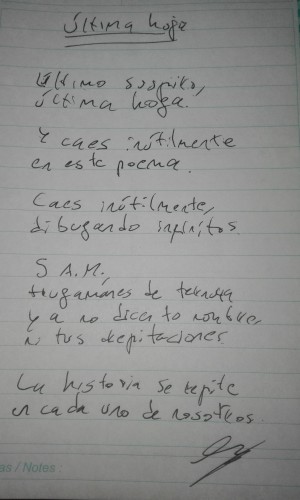 Última hoja
Último suspiro,
última hoja.
Y caes inútilmente
en este poema.
Caes inútilmente,
dibujando infinitos.
5 A.M.,
de ternura
y a no dicen tu nombre,
ni tus
La historia se repite
en cada uno de nosotros.
as / Notes :